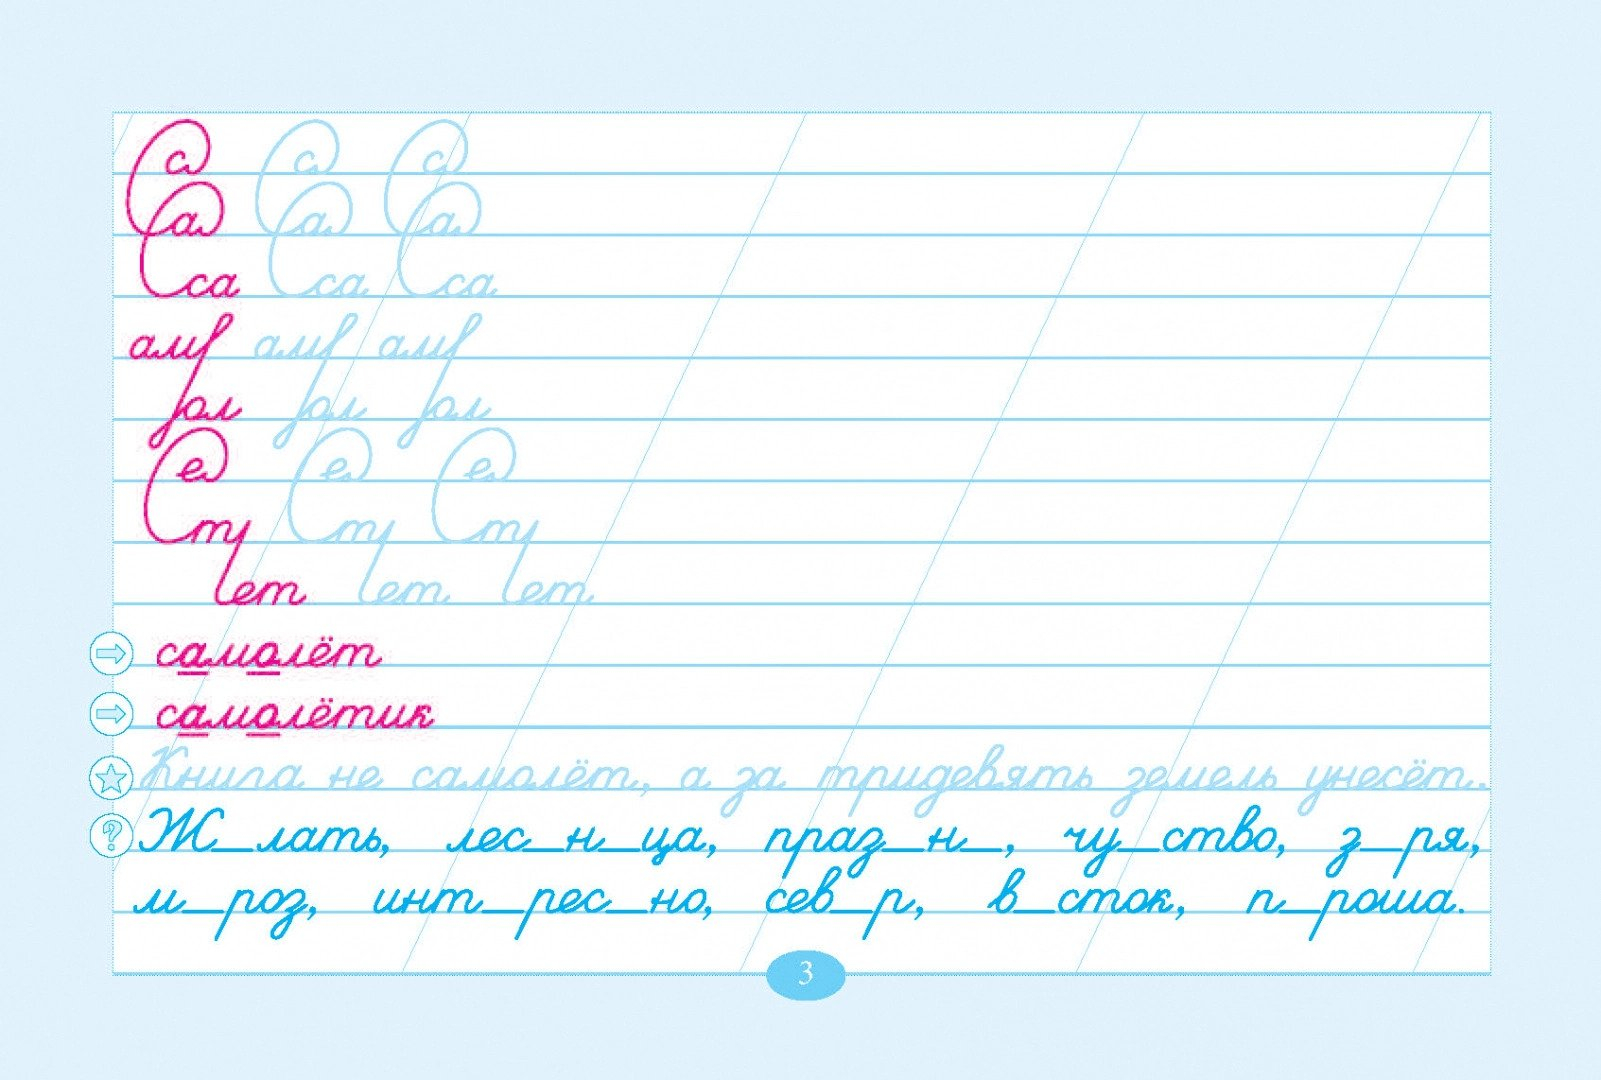 Са Са Са
Са Са Са
са са са
ам ам ам
ол ол ол
Се Се Се
ст ст ст
лет лет лет
самолёт
самолётик
Книга не самолёт, а за тридевять земель унесёт.
Ж_лать, лес_н_ца, праз_н_, чу_ство, з_ря,
м_роз, инт_рес_но, сев_р, в_сток, п_роша.
3